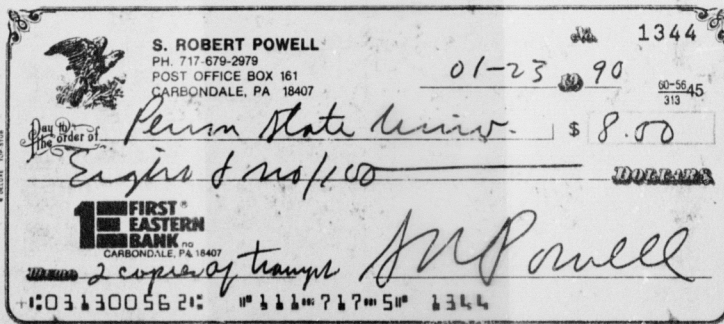 S. ROBERT POWELL
No. 1344
PH. 717-679-2979
POST OFFICE BOX 161
CARBONDALE, PA 18407
01-23 19 90
60-5645
313
Pay to the order of Penn State Univ. $ 8.00
Eight & no/100 DOLLARS
1E FIRST EASTERN BANK na
CARBONDALE, PA 18407
MEMO 2 copies of transpt S R Powell
⑆031300562⑆ ⑈111⑉717⑉5⑈ 1344